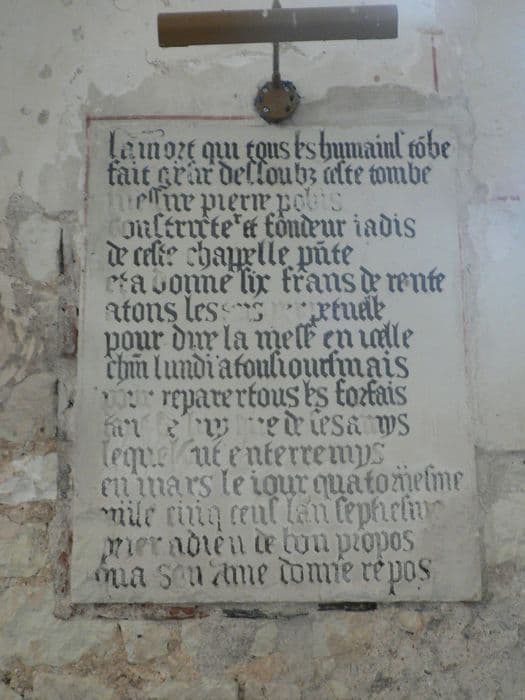 la mort qui tous les humains tõbe
fait gesir dessoubz ceste tombe
messire pierre
constructer et fondeur iadis
de ceste chappelle pñte
et a donne six frans de rente
a tous les perpetuelle
pour dire la messe en icelle
chũn lundi a tousioursmais
pour reparer tous les forfais
de de ses amys
lequel fut enterre mys
en mars le iour quatoriesme
mile cinq cens lan septiesme
prier a dieu de bon propos
qua son ame donne repos